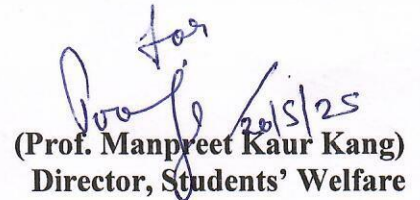 for
20/5/25
(Prof. Manpreet Kaur Kang)
Director, Students’ Welfare